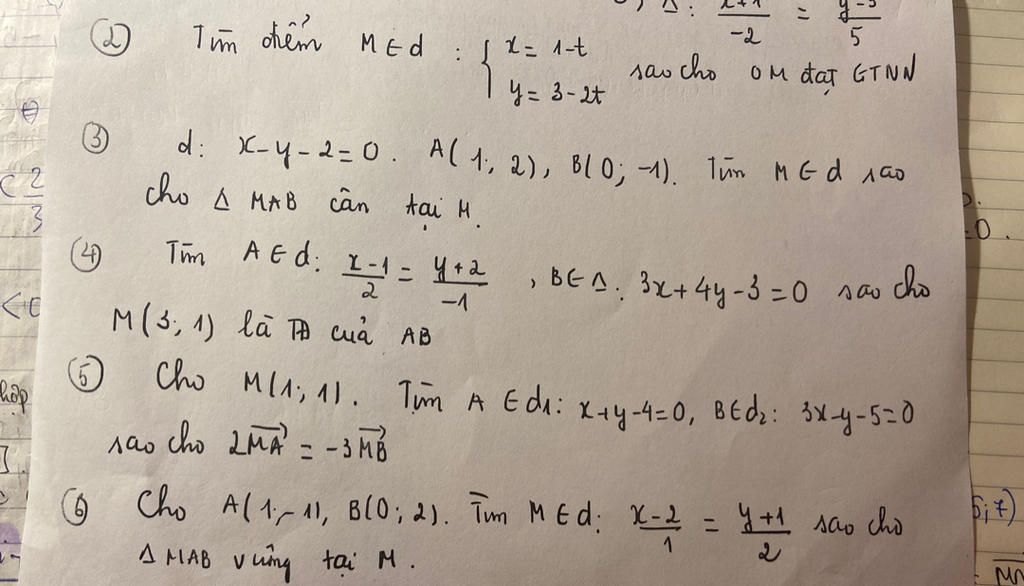 Δ: \frac{x+1}{-2} = \frac{y-3}{5}
② Tìm điểm M ∈ d : { x = 1-t
y = 3-2t sao cho OM đạt GTNN
③ d: x-y-2=0. A(1; 2), B(0; -1). Tìm M ∈ d sao
cho Δ MAB cân tại M.
④ Tìm A ∈ d: \frac{x-1}{2} = \frac{y+2}{-1}, B ∈ Δ: 3x+4y-3=0 sao cho
M(3; 1) là TĐ của AB
⑤ Cho M(1; 1). Tìm A ∈ d1: x+y-4=0, B∈d2: 3x-y-5=0
sao cho 2\overrightarrow{MA} = -3\overrightarrow{MB}
⑥ Cho A(1; -1), B(0; 2). Tìm M ∈ d: \frac{x-2}{1} = \frac{y+1}{2} sao cho
Δ MAB vuông tại M.